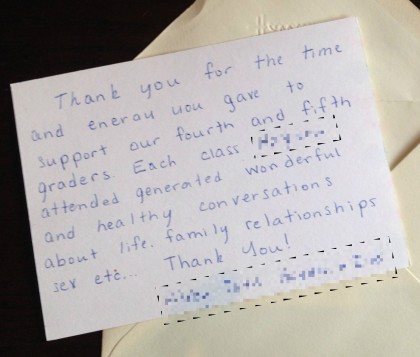 Thank you for the time
and energy you gave to
support our fourth and fifth
graders. Each class
attended generated wonderful
and healthy conversations
about life, family relationships
sex etc... Thank You!